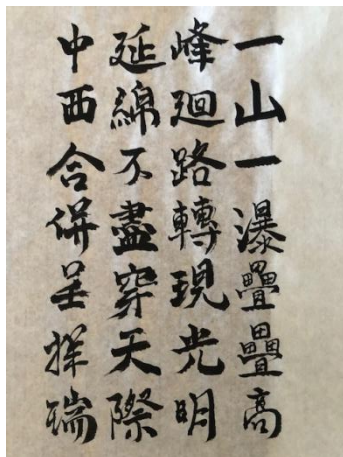 一山一瀑疊疊高
峰廻路轉現光明
延綿不盡穿天際
中西合併呈祥瑞